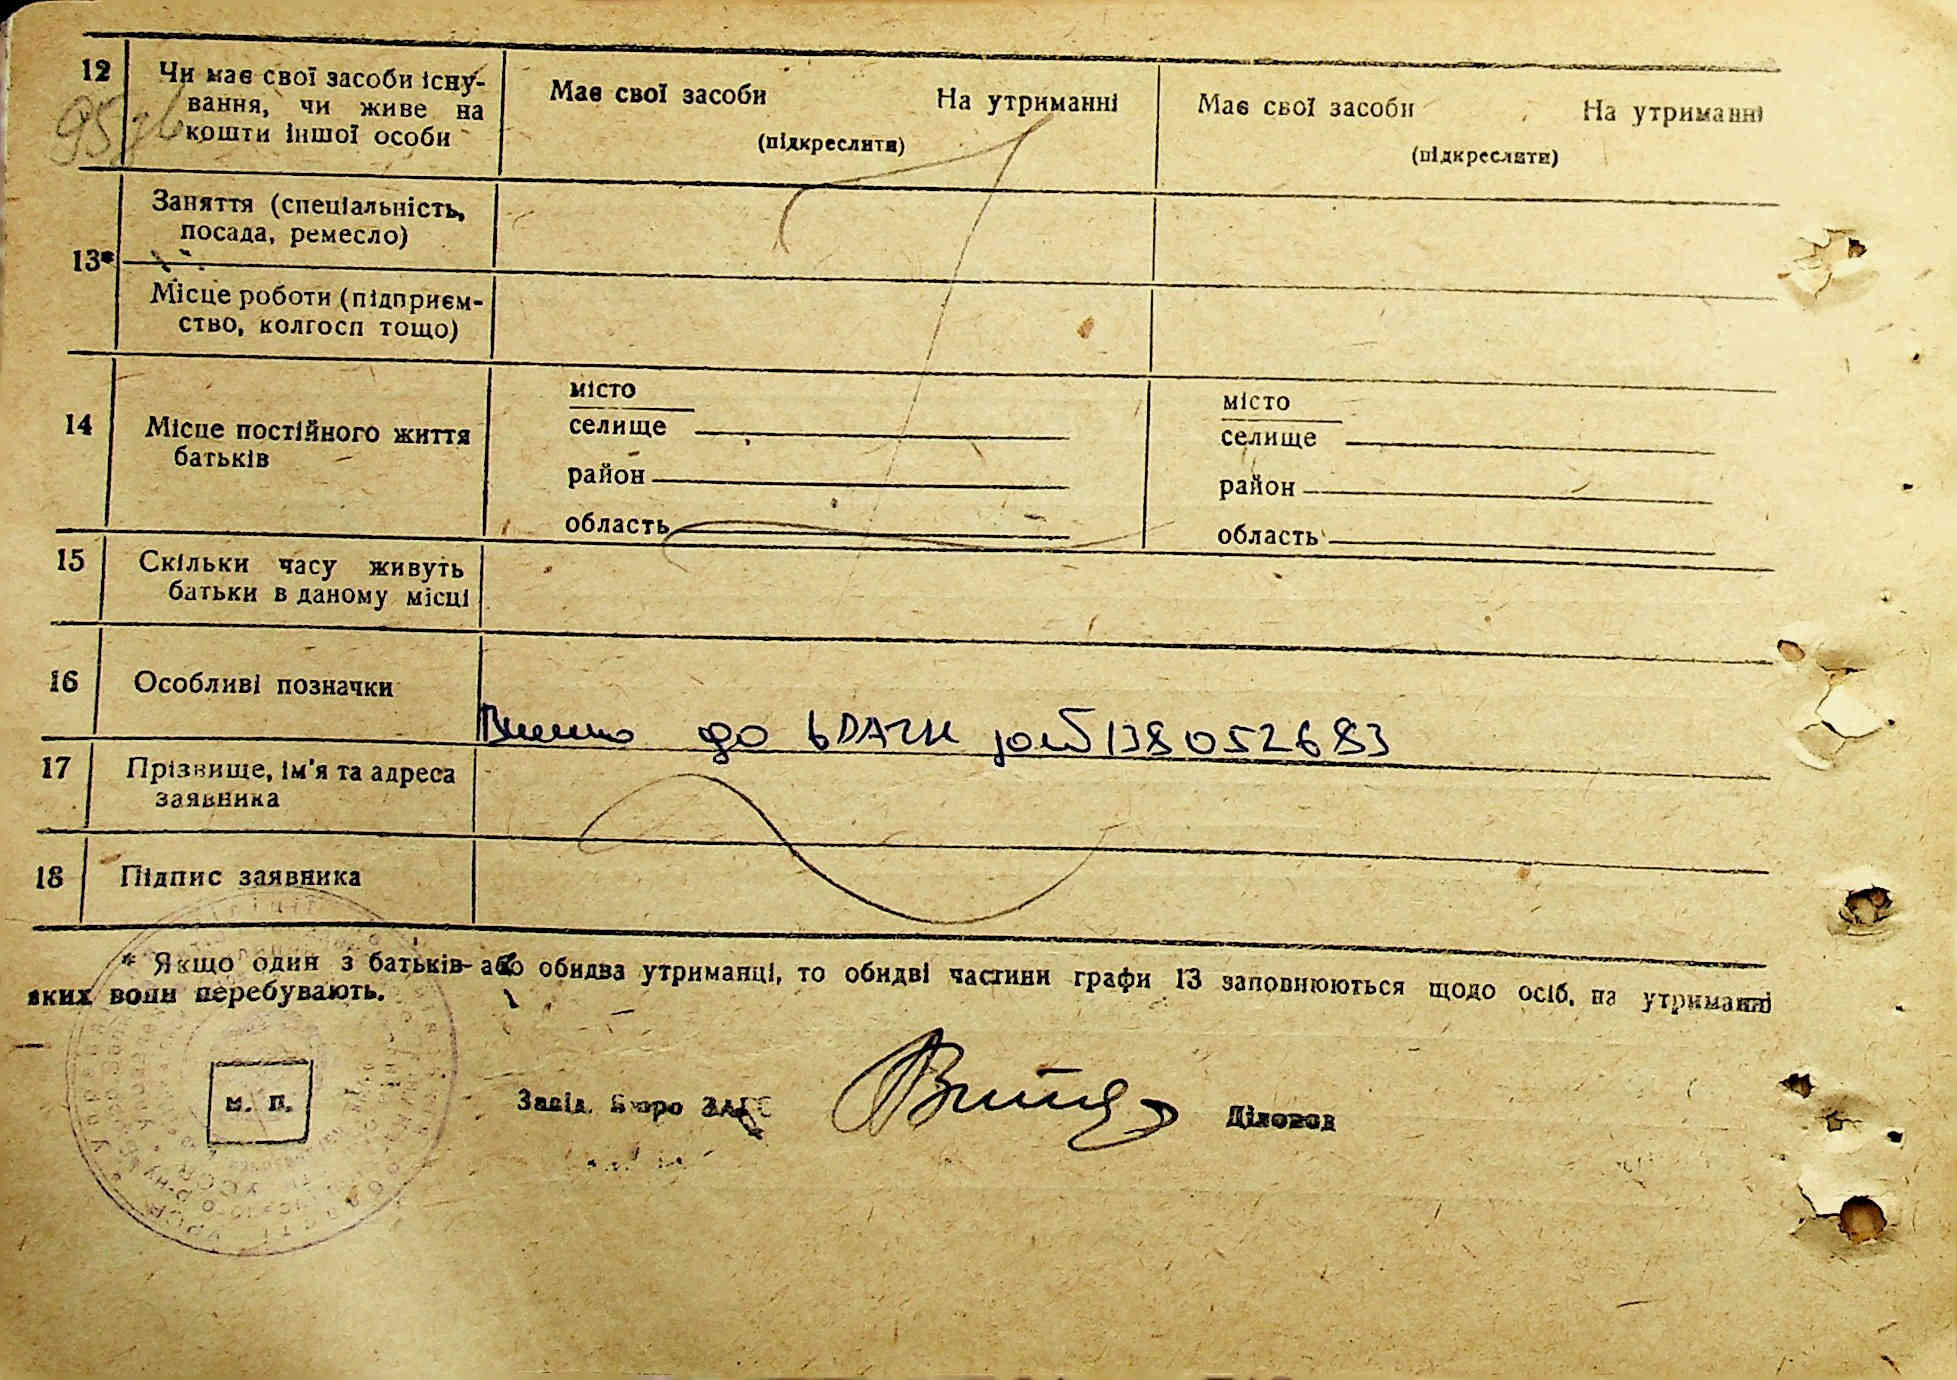 12 Чи має свої засоби існу-
вання, чи живе на
кошти іншої особи
Має свої засоби На утриманні
(підкреслити)
Має свої засоби На утриманні
(підкреслити)
95
13* Заняття (спеціальність,
посада, ремесло)
Місце роботи (підприєм-
ство, колгосп тощо)
14 Місце постійного життя
батьків
місто
селище
район
область
місто
селище
район
область
15 Скільки часу живуть
батьки в даному місці
16 Особливі позначки
до 00138052683
17 Прізвище, ім'я та адреса
заявника
18 Підпис заявника
* Якщо один з батьків або обидва утриманці, то обидві частини графи 13 заповнюються щодо осіб, на утриманні
яких вони перебувають.
м. п.
Завід. Бюро ЗАГС Діловод